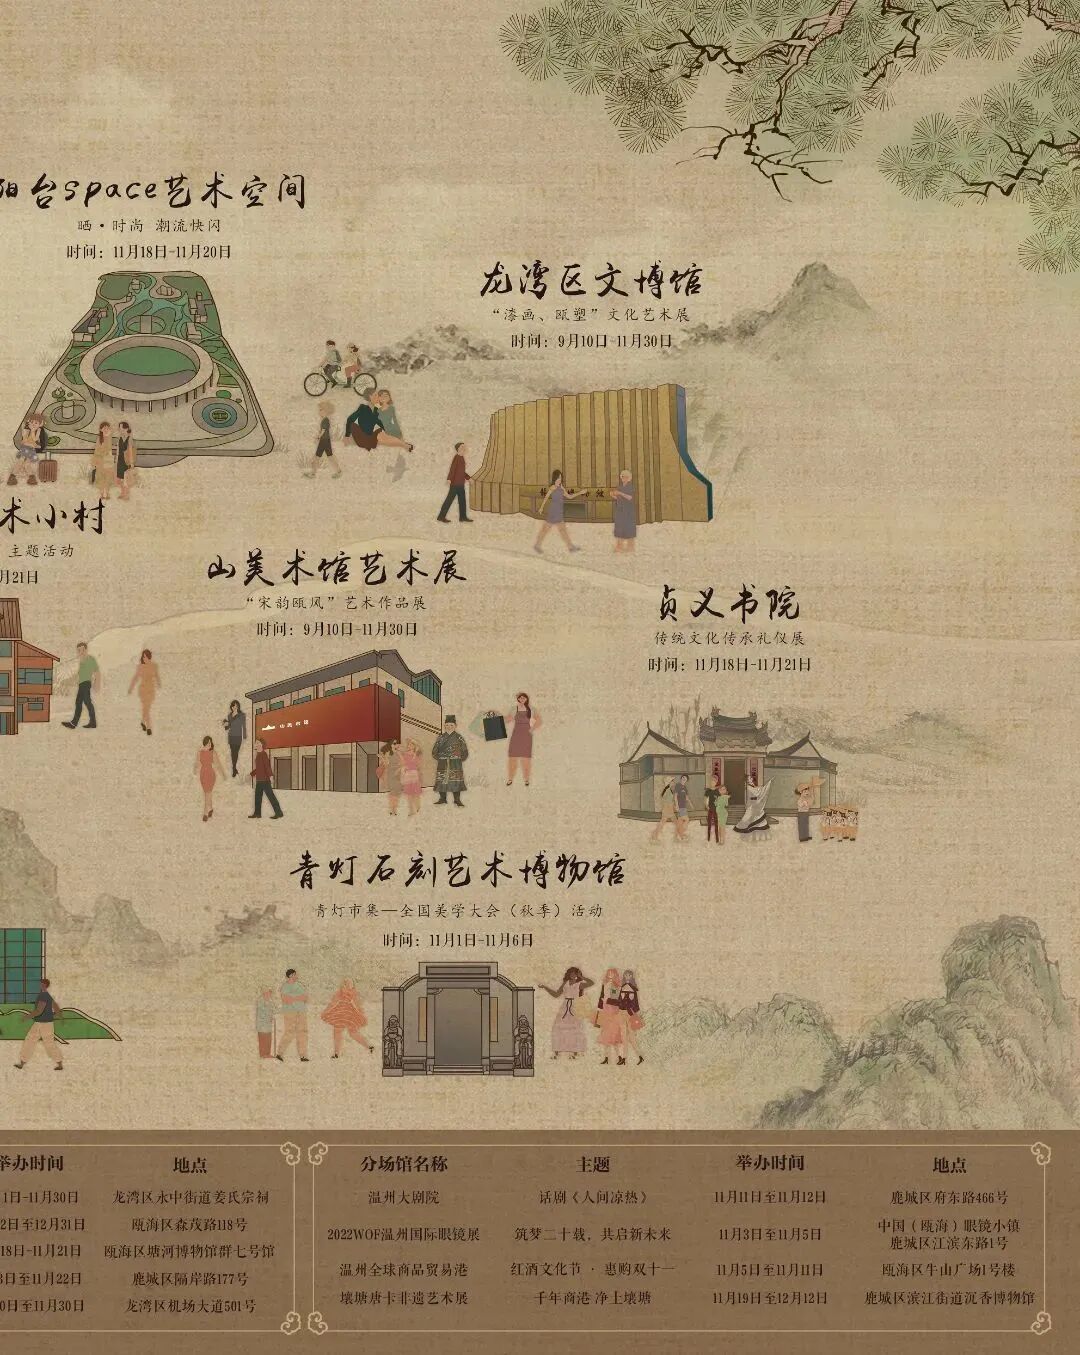 阳台space艺术空间
晒·时尚 潮流快闪
时间：11月18日-11月20日
龙湾区文博馆
“漆画、瓯塑”文化艺术展
时间：9月10日-11月30日
术小村
主题活动
月21日
山美术馆艺术展
“宋韵瓯风”艺术作品展
时间：9月10日-11月30日
贞义书院
传统文化传承礼仪展
时间：11月18日-11月21日
青灯石刻艺术博物馆
青灯市集—全国美学大会（秋季）活动
时间：11月1日-11月6日
举办时间 地点
1日-11月30日 龙湾区永中街道姜氏宗祠
2日至12月31日 瓯海区森茂路118号
18日-11月21日 瓯海区塘河博物馆群七号馆
3日至11月22日 鹿城区隔岸路177号
0日至11月30日 龙湾区机场大道501号
分场馆名称 主题 举办时间 地点
温州大剧院 话剧《人间凉热》 11月11日至11月12日 鹿城区府东路466号
2022WOF温州国际眼镜展 筑梦二十载，共启新未来 11月3日至11月5日 中国（瓯海）眼镜小镇
鹿城区江滨东路1号
温州全球商品贸易港 红酒文化节 · 惠购双十一 11月5日至11月11日 瓯海区牛山广场1号楼
壤塘唐卡非遗艺术展 千年商港 净土壤塘 11月19日至12月12日 鹿城区滨江街道沉香博物馆